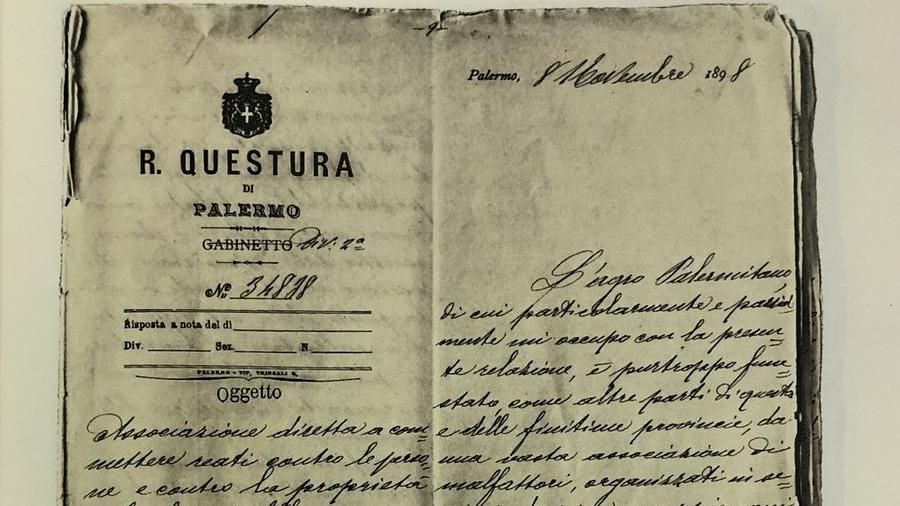 -9-
Palermo, 8 Novembre 1898
R. QUESTURA
DI
PALERMO
GABINETTO Div: 2ª
Nº 34818
Risposta a nota del dì
Div. Sez. N.
PALERMO - TIP, VRINGALI G,
Oggetto
Associazione diretta a com=
mettere reati contro le perso=
ne e contro la proprietà
L'agro Palermitano
di cui particolarmente e
mente mi occupo con la presen=
te relazione, è purtroppo fune=
stato, come altre parti di questa
e delle finitime provincie, da
una vasta associazione di
malfattori, organizzati in se=